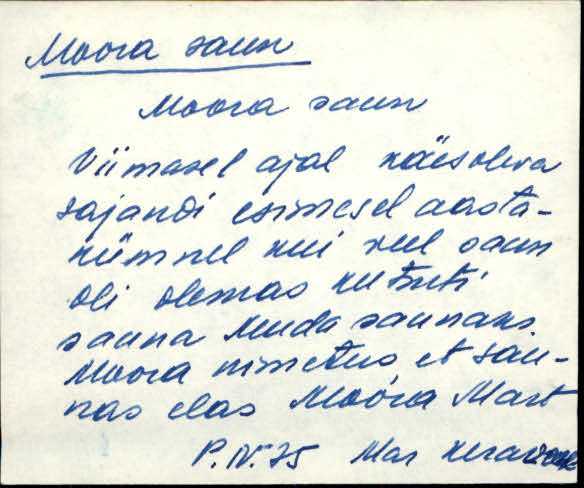 Moora saun
Moora saun
Viimasel ajal käesoleva
sajandi esimesel aasta-
kümnel kui veel saun
oli olemas kutsuti
sauna Muda saunaks
Moora nimetus et sau-
nas elas Moóra Mart
P. IV. 75 Mar